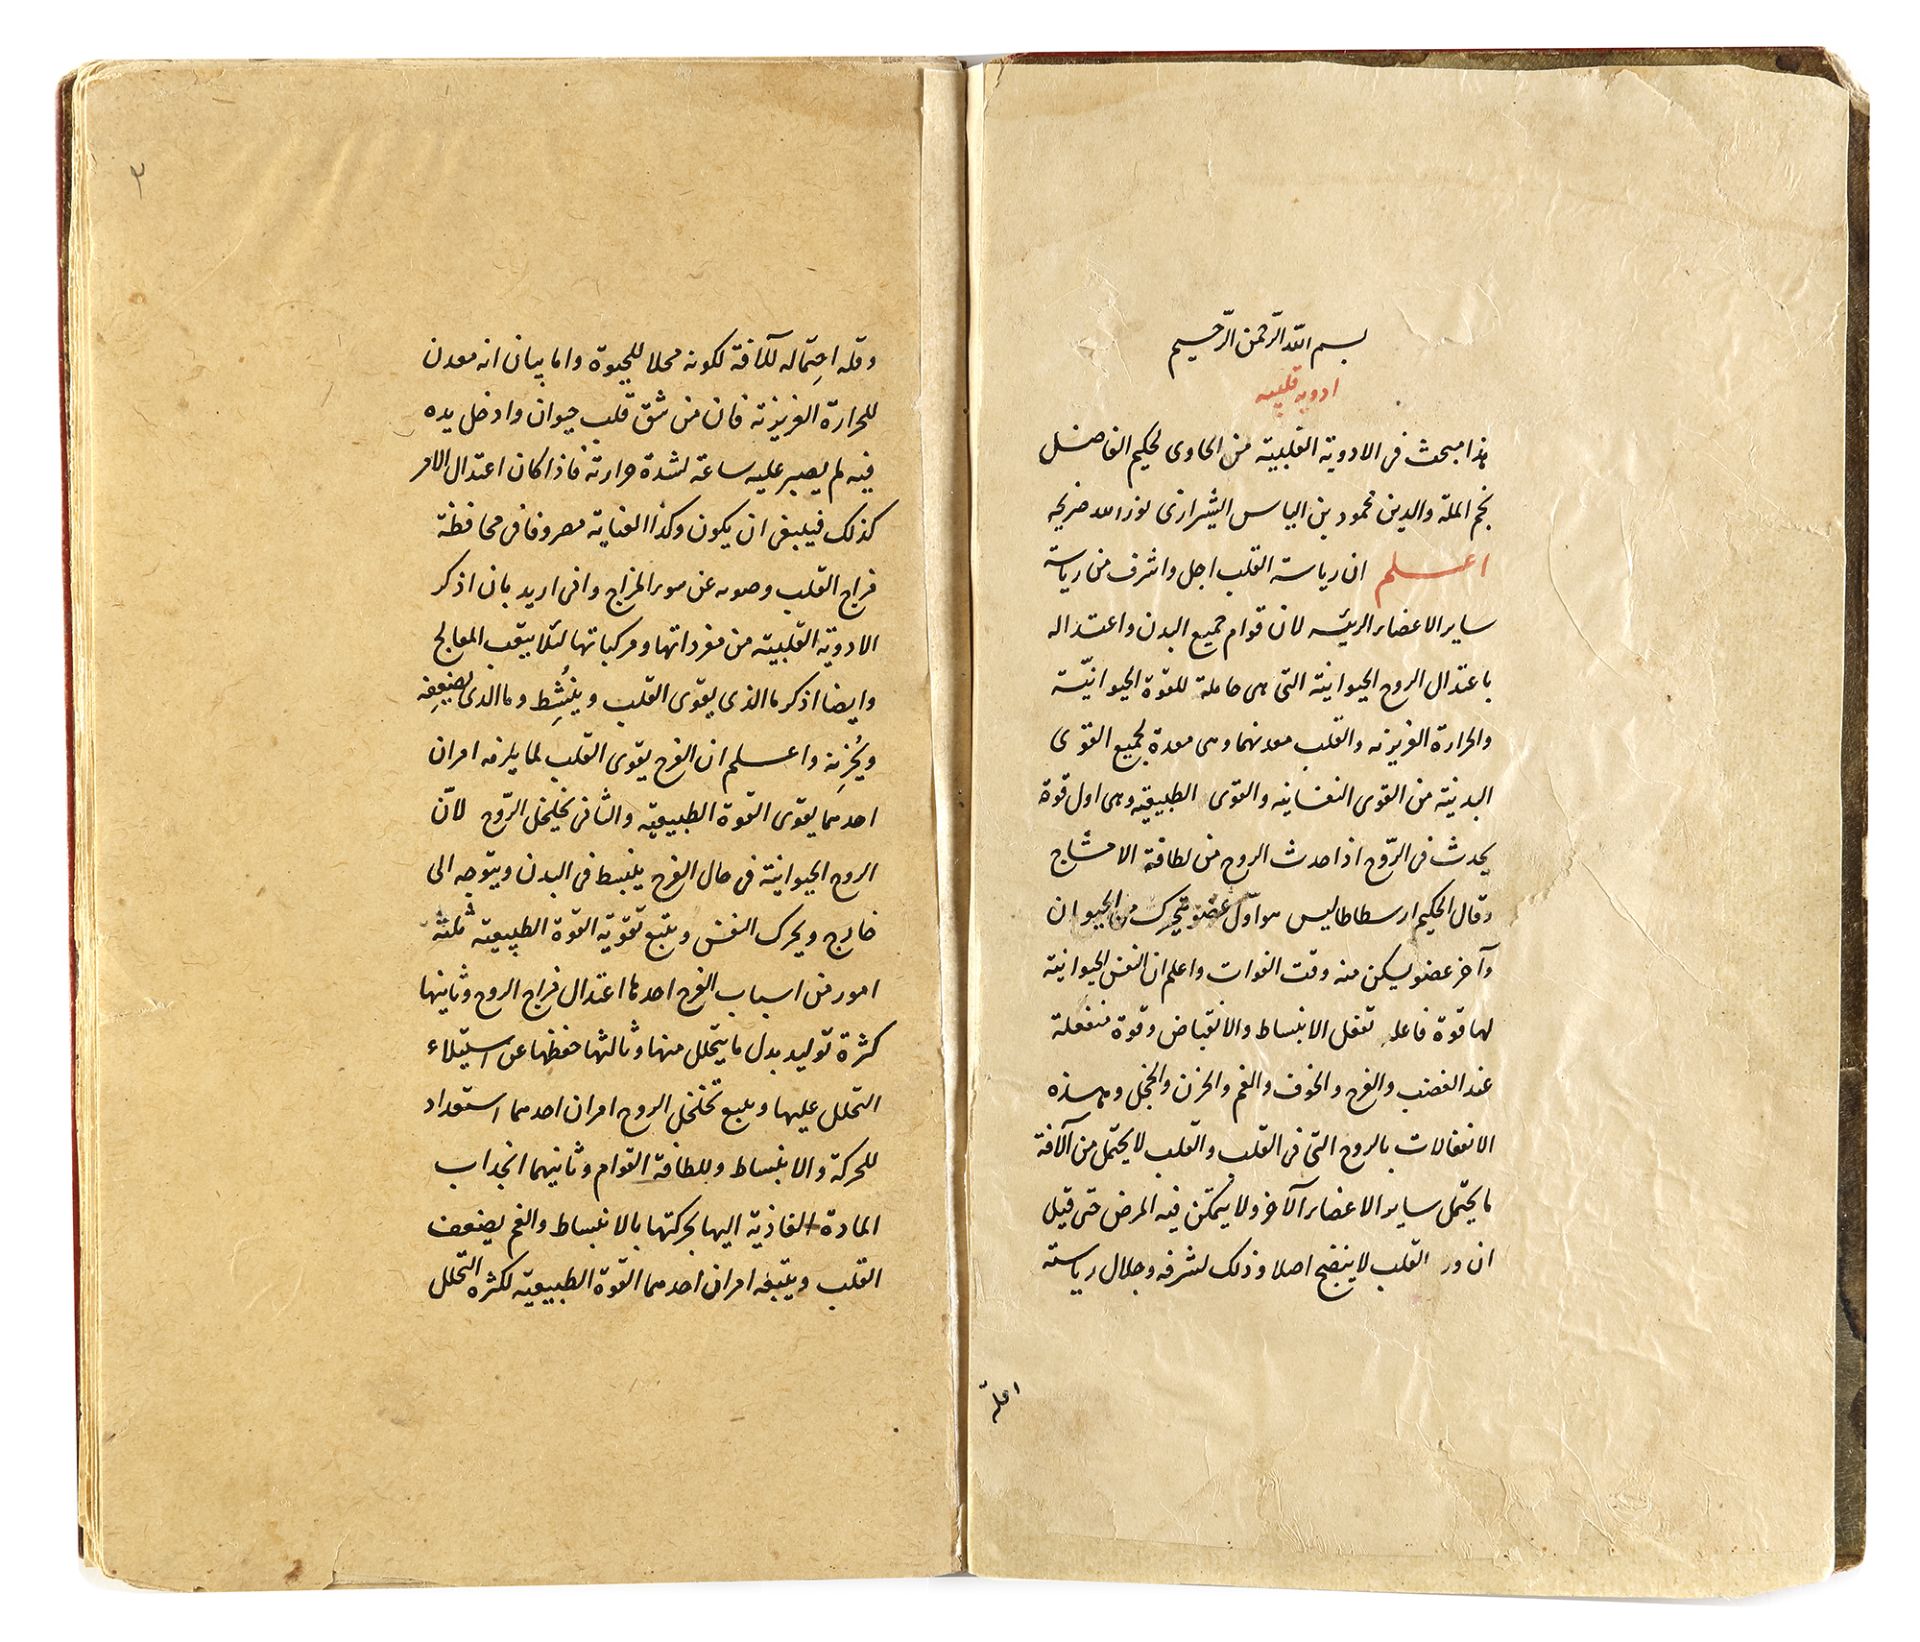 بسم الله الرّحمن الرّحیم
ادویه قلبیه
هذا مبحث فی الادویة القلبیة من الحاوی لحکیم الفاضل
نجم الملة والدین محمود بن الیاس الشیرازی نور الله ضریحه
اعلم ان ریاسة القلب اجل واشرف من ریاسة
سایر الاعضاء الرئیسه لان قوام جمیع البدن واعتداله
باعتدال الروح الحیوانیة التی هی حاملة للقوة الحیوانیّة
والحرارة الغریزیه والقلب معدنهما وهی معدة لجمیع القوی
البدنیة من القوی النفسانیه والقوی الطبیعیه وهی اول قوة
یحدث فی الرّوح اذا حدث الروح من لطافة الامشاج
وقال الحکیم ارسطاطالیس هو اوّل عضو یتحرک من الحیوان
وآخر عضو یسکن منه وقت الفوات واعلم ان النفس الحیوانیة
لها قوة فاعله تفعل الانبساط والانقباض وقوة منفعلة
عند الغضب والفرح والخوف والغم والحزن والخجل وهذه
الانفعالات بالروح التی فی القلب والقلب لا یحتمل من الآفة
ما یحتمل سایر الاعضاء الآخر ولا یتمکن فیه المرض حتی قیل
ان ورم القلب لا ینضج اصلا وذلک لشرفه وجلال ریاسته
٢
وقله احتماله للآفة لکونه محلا للحیوة واما بیان انه معدن
للحرارة الغریزیة فان من شق قلب حیوان وادخل یده
فیه لم یصبر علیه ساعة لشدة حرارته فاذا کان اعتدال الامر
کذلک فینبغی ان یکون وکذا العنایة مصروفا فی محافظة
مزاج القلب وصونه عن سوء المزاج وانی ارید بان اذکر
الادویة القلبیة من مفرداتها ومرکباتها لئلا یتعب المعالج
وایضا اذکر ما الذی یقوی القلب وینُشِط وما الذی یضیعفِه
ویُحزِنه واعلم ان الفرح یقوی القلب لما یلزمه امران
احدهما یقوی القوة الطبیعیه والثانی تخلخل الرّوح لانّ
الروح الحیوانیة فی حال الفرح ینبسط فی البدن ویتوجه الی
خارج ویحرک النفس ویتبع تقویة القوة الطبیعیه ثلثه
امور من اسباب الفرح احدها اعتدال مزاج الروح وثانیها
کثرة تولید بدل ما یتحلل منها وثالثها حفظها عن استیلاء
التحلل علیها ویتبع تخلخل الروح امران احدهما استعداد
للحرکة والانبساط وللطافة القوام وثانیهما انجذاب
المادة الغاذیة الیها بحرکتها بالانبساط والغم یضعف
القلب ویتبعه امران احدهما القوة الطبیعیة لکثرة التحلل